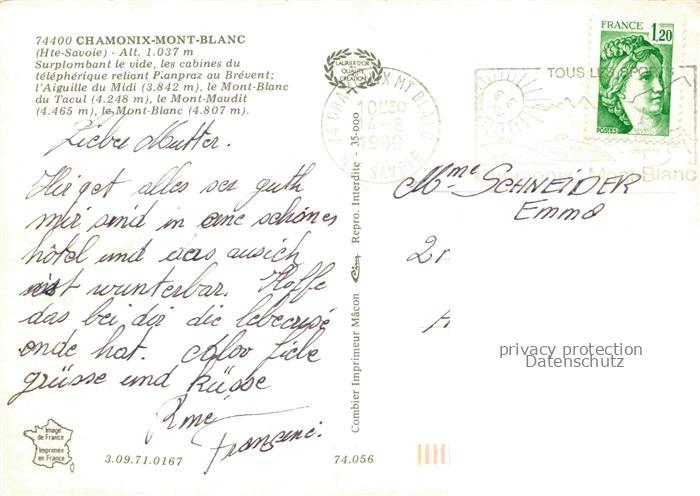 74400 CHAMONIX-MONT-BLANC
(Hte-Savoie) - Alt. 1.037 m
Surplombant le vide, les cabines du
téléphérique reliant Planpraz au Brévent;
l'Aiguille du Midi (3.842 m), le Mont-Blanc
du Tacul (4.248 m), le Mont-Maudit
(4.465 m), le Mont-Blanc (4.807 m).
Liebe Mutter.
Hir get alles ser guth
mir sind in ane schönes
hôtel und das ausich
ist wunterbar. Hoffe
das bei dir die
onde hat. alov Liebe
grüsse und küsse
René
Francine.
Image
de France
Imprimée
en France
3.09.71.0167
74.056
Combier Imprimeur Mâcon
Repro. Interdite - 35-000
LAURIER D'OR
QUALITÉ
CREATION
74 CHAMONIX MT BLANC
10H30
14-8
1980
HTE SAVOIE
TOUS LES SPO
Chamonix-Mont-Blanc
FRANCE
1,20
POSTES
Mme SCHNEIDER
Emma
2
privacy protection
Datenschutz